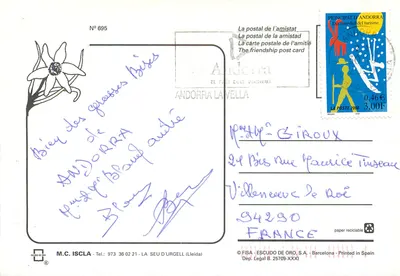 Nº 695
La postal de l'amistat
La postal de la amistad
La carte postale de l'amitié
The friendship post card
PRINCIPAT D'ANDORRA
0,46€
3,00F
LA POSTE 1998
Andorra
ANDORRA LA VELLA
Bien des grosses Bises
de
ANDORRA
GIROUX
21 Bis rue Maurice
Villeneuve le Roi
94290
FRANCE
paper recyclable
M.C. ISCLA - Tel.: 973 36 02 21 - LA SEU D'URGELL (Lleida)
© FISA - ESCUDO DE ORO, S.A. - Barcelona - Printed in Spain
Dep. Legal B. 25709-XXXI